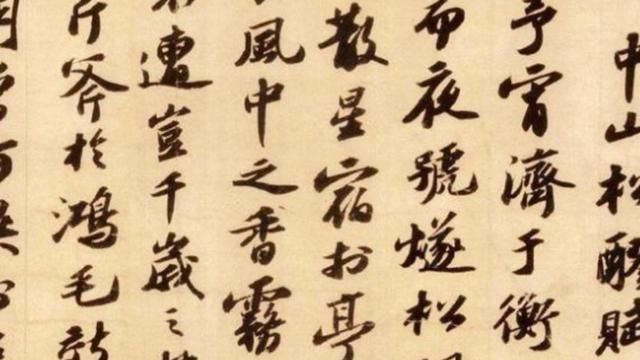 中山松醪賦
予宵濟于衡
而夜號燧松
散星宿於亭
風中之香霧
遭豈千歲之
斤斧於鴻毛